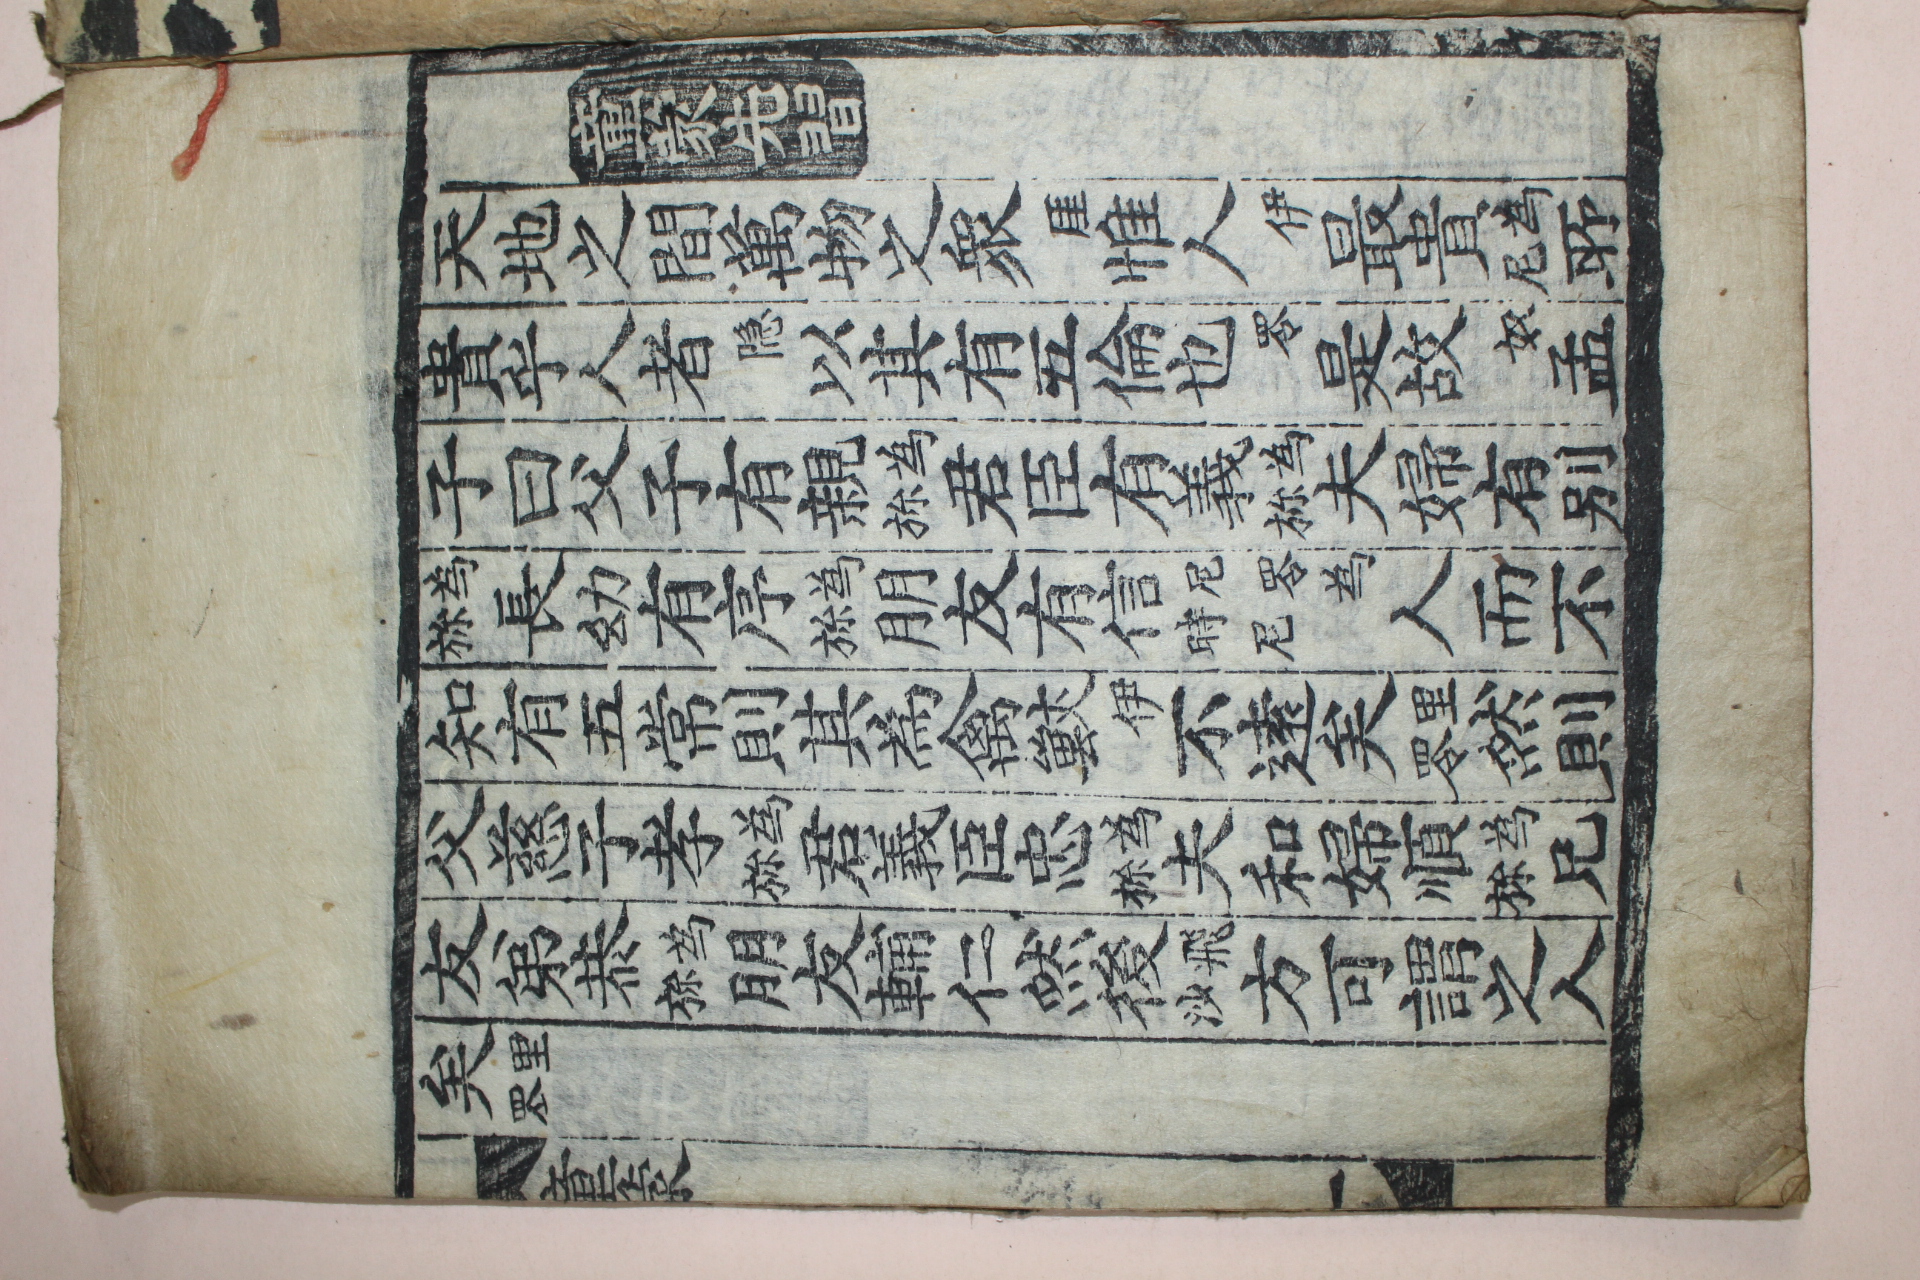 童蒙先習
天地之間萬物之衆厓惟人伊最貴爲尼所
貴乎人者隐以其有五倫也罗是故奴孟
子曰父子有親爲㫆君臣有義爲㫆夫婦有別
爲㫆長幼有序爲㫆朋友有信尼罗爲時尼人而不
知有五常則其希禽獸伊不遠矣里罗然則
父慈子孝爲㫆君義臣忠爲㫆夫和婦順爲㫆兄
友弟恭爲㫆朋友輔仁然後飛沙方可謂之人
矣里罗
童蒙 一